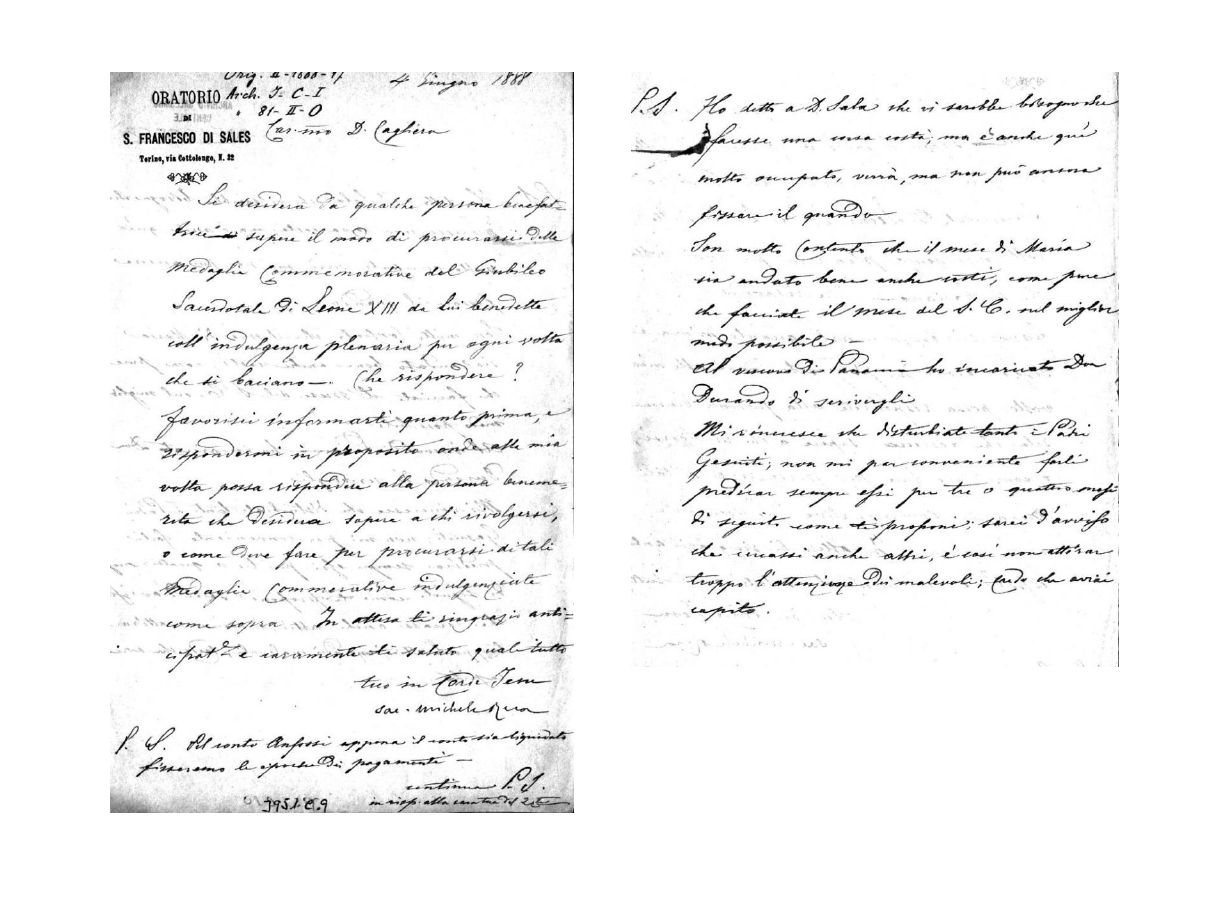 Orig. II-1888-17
4 Giugno 1888
ORATORIO Arch. I= C-I
DI " 81-II-O
S. FRANCESCO DI SALES Car.mo D. Cagliero
Torino, via Cottolengo, N. 32
Si desidera da qualche persona benefat=
trice di sapere il modo di procurarsi delle
Medaglie Commemorative del Giubileo
Sacerdotale di Leone XIII da lui benedette
coll'indulgenza plenaria per ogni volta
che si baciano—. Che rispondere ?
favorisci informarti quanto prima, e
rispondermi in proposito onde alla mia
volta possa rispondere alla persona beneme=
rita che desidera sapere a chi rivolgersi,
o come deve fare per procurarsi di tali
Medaglie Commemorative indulgenziate
come sopra In attesa ti ringrazio anti=
cipat.e e caramente ti saluto quale tutto
tuo in Corde Jesu
sac. Michele Rua
P. S. Pel conto Anfossi appena il conto sia liquidato
fisseremo le epoche di pagamenti —
continua P. S.
in risp. alla cara tua del
3951.C.9
P. S. Ho detto a D. Sala che vi sarebbe bisogno che
facesse una corsa costà; ma è anche qui
molto occupato, verrà, ma non può ancora
fissare il quando
Son molto Contento che il mese di Maria
sia andato bene anche costì, come pure
che facciate il mese del S. C. nel miglior
modo possibile —
Al vescovo di Panamà ho incaricato Don
Durando di scrivergli
Mi rincresce che disturbiate tanto i Padri
Gesuiti; non mi par conveniente farli
predicar sempre essi per tre o quattro mesi
di seguito come ti proponi; sarei d'avviso
che cercassi anche altri, e così non attirar
troppo l'attenzione dei malevoli; credo che avrai
capito.